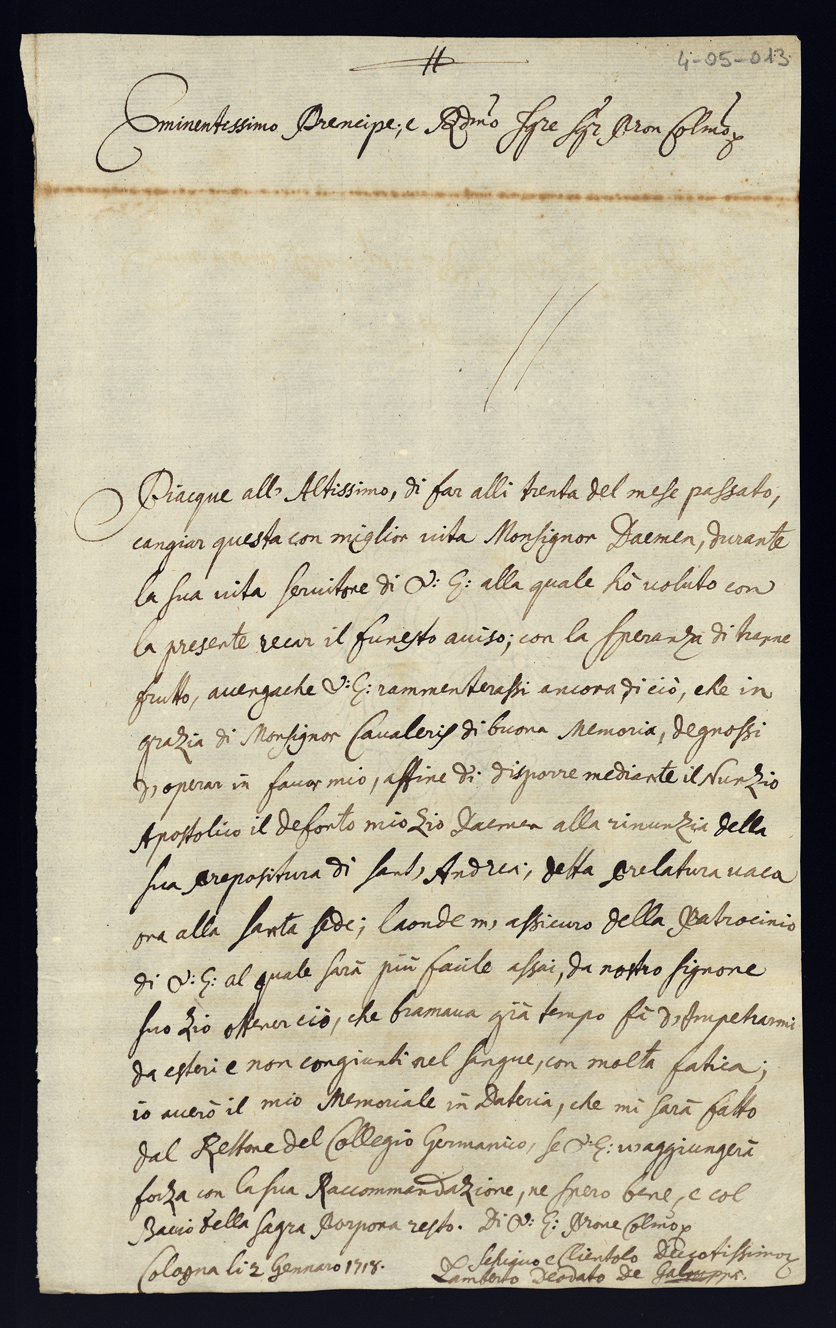 4-05-013
Eminentissimo Prencipe, e Rdmo Sigre Sigr Pron Colmo
Piacque all' Altissimo, di far alli trenta del mese passato,
cangiar questa con miglior uita Monsignor Daemen, durante
la sua uita seruitore di V: E: alla quale hò uoluto con
la presente recar il funesto auiso; con la speranza di trarne
frutto, auengache V: E: rammenterassi ancora di ciò, che in
grazia di Monsignor Caualerij di buona Memoria, degnossi
d'operar in fauor mio, affine di disporre mediante il Nunzio
Apostolico il defonto mio Zio Daemen alla rinunzia della
sua prepositura di sant' Andrea; detta prelatura uaca
ora alla santa sede; laonde m' assicuro della Patrocinio
di V: E: al quale sarà più facile assai, da nostro signore
suo Zio ottener ciò, che bramaua già tempo fà d'impetrarmi
da esteri e non congiunti nel sangue, con molta fatica;
io auerò il mio Memoriale in Dateria, che mi sarà fatto
dal Rettore del Collegio Germanico, se V: E: u'aggiungerà
forza con la sua Raccommandazione, ne spero bene, e col
Bacio della sagra Porpora resto. Di V: E: Prone Colmo
Colonna li 2 Gennaro 1718.
e Clientolo Diuotissimo
Lamberto Deodato De